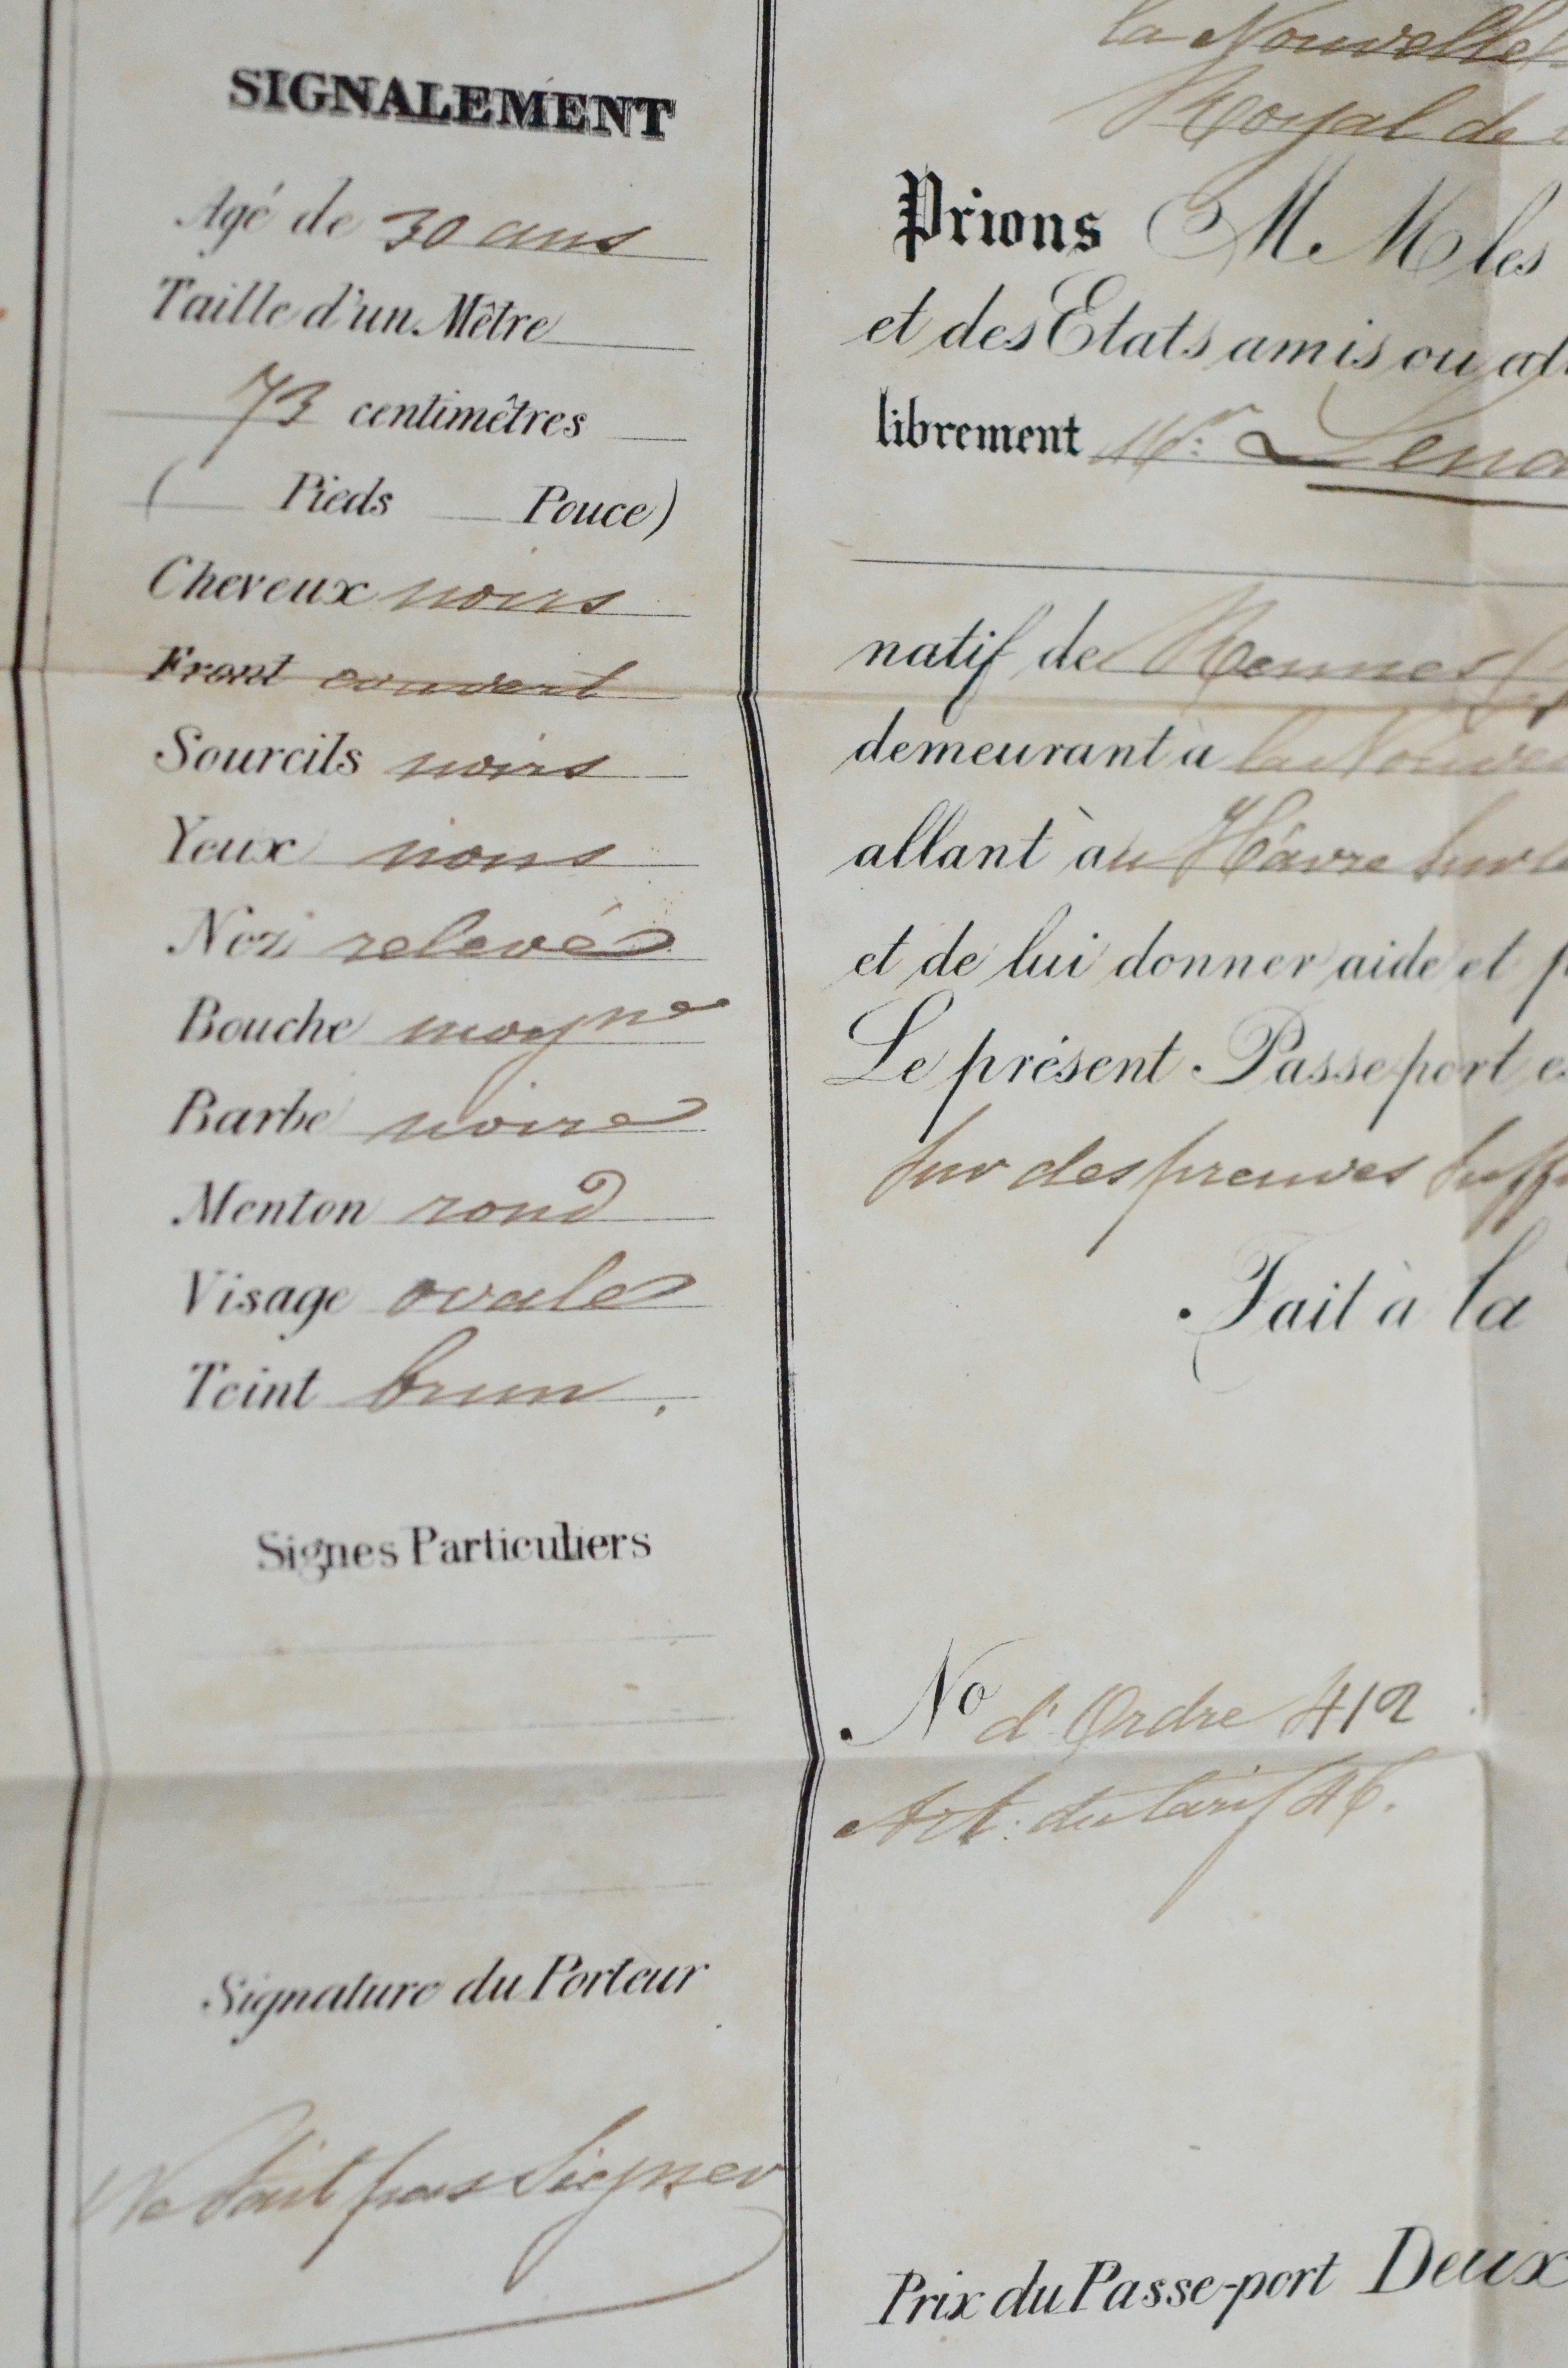 SIGNALEMENT
Agé de 30 ans
Taille d'un Mêtre
73 centimêtres
( Pieds Pouce)
Cheveux noirs
Front couvert
Sourcils noirs
Yeux noirs
Nez relevé
Bouche moyne
Barbe noire
Menton rond
Visage ovale
Teint brun
Signes Particuliers
Signature du Porteur
Ne Sait pas Signer
la Nouvelle
Royal de
Prions M.M les
et des Etats amis ou al
librement Mr.
natif de Rennes
demeurant à la Nouve
allant à au Hâvre sur
et de lui donner aide et p
Le présent Passeport e
sur des preuves suff
Fait à la
No d'Ordre 412
Art. du tarif 46.
Prix du Passe-port Deux